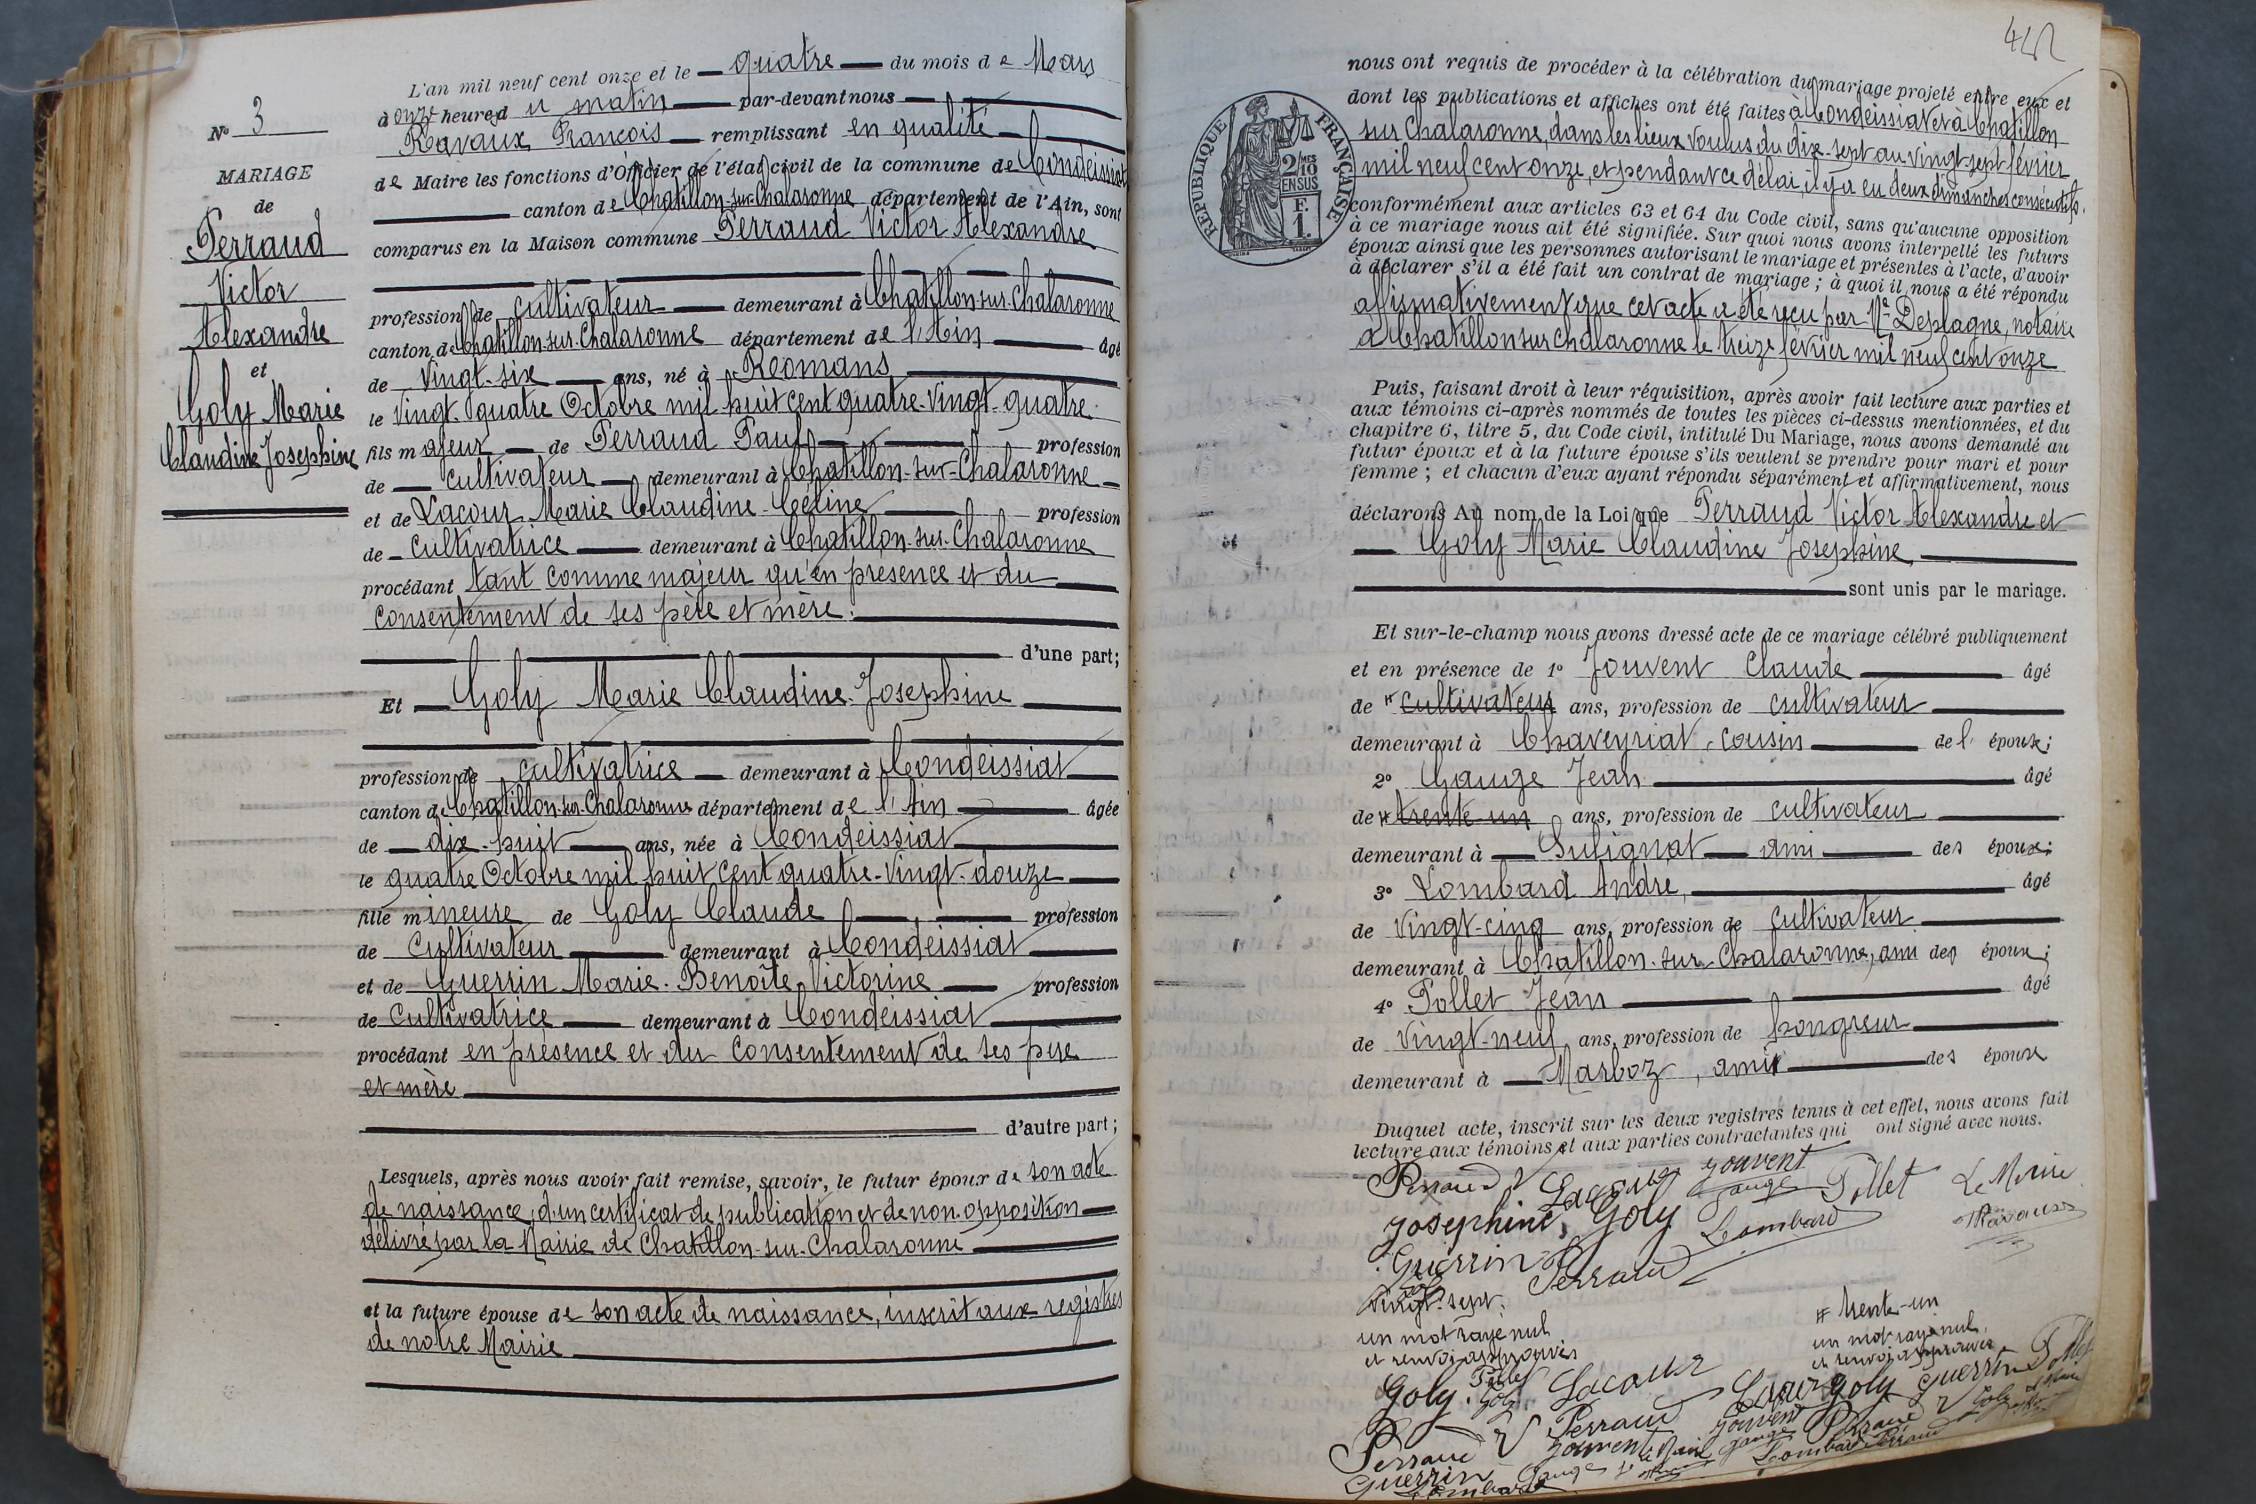 N° 3
MARIAGE
de
Perraud
Victor
Alexandre
et
Goly Marie
Claudine Josephine
L'an mil neuf cent onze et le quatre du mois de Mars
à onze heures du matin par-devant nous
Ravaux François remplissant en qualité
de Maire les fonctions d'Officier de l'état civil de la commune de Condeissiat
canton de Chatillon-sur-Chalaronne département de l'Ain, sont
comparus en la Maison commune Perraud Victor Alexandre
profession de cultivateur demeurant à Chatillon-sur-Chalaronne
canton de Chatillon-sur-Chalaronne département de l'Ain âgé
de vingt-six ans, né à Romans
le vingt-quatre Octobre mil huit cent quatre-vingt-quatre
fils majeur de Perraud Paul profession
de cultivateur demeurant à Chatillon-sur-Chalaronne
et de Lacour Marie Claudine-Céline profession
de cultivatrice demeurant à Chatillon-sur-Chalaronne
procédant tant comme majeur qu'en présence et du
consentement de ses père et mère.
d'une part;
Et Goly Marie Claudine-Josephine
profession de cultivatrice demeurant à Condeissiat
canton de Chatillon-sur-Chalaronne département de l'Ain âgée
de dix-huit ans, née à Condeissiat
le quatre Octobre mil huit cent quatre-vingt-douze
fille mineure de Goly Claude profession
de cultivateur demeurant à Condeissiat
et de Guerrin Marie-Benoîte Victorine profession
de cultivatrice demeurant à Condeissiat
procédant en présence et du consentement de ses père
et mère
d'autre part;
Lesquels, après nous avoir fait remise, savoir, le futur époux de son acte
de naissance, d'un certificat de publication et de non-opposition
délivré par la Mairie de Chatillon-sur-Chalaronne
et la future épouse de son acte de naissance, inscrit aux registres
de notre Mairie
nous ont requis de procéder à la célébration du mariage projeté entre eux et
dont les publications et affiches ont été faites à Condeissiat et à Chatillon
sur Chalaronne, dans les lieux voulus du dix-sept au vingt-sept février
mil neuf cent onze, et pendant ce délai, il y a eu deux dimanches consécutifs.
RÉPUBLIQUE FRANÇAISE
2/10 MES
EN SUS
F.
1.
conformément aux articles 63 et 64 du Code civil, sans qu'aucune opposition
à ce mariage nous ait été signifiée. Sur quoi nous avons interpellé les futurs
époux ainsi que les personnes autorisant le mariage et présentes à l'acte, d'avoir
à déclarer s'il a été fait un contrat de mariage; à quoi il nous a été répondu
affirmativement que cet acte a été reçu par Me Deplagne, notaire
à Chatillon sur Chalaronne le treize février mil neuf cent onze
Puis, faisant droit à leur réquisition, après avoir fait lecture aux parties et
aux témoins ci-après nommés de toutes les pièces ci-dessus mentionnées, et du
chapitre 6, titre 5, du Code civil, intitulé Du Mariage, nous avons demandé au
futur époux et à la future épouse s'ils veulent se prendre pour mari et pour
femme; et chacun d'eux ayant répondu séparément et affirmativement, nous
déclarons Au nom de la Loi que Perraud Victor Alexandre et
Goly Marie Claudine Josephine
sont unis par le mariage.
Et sur-le-champ nous avons dressé acte de ce mariage célébré publiquement
et en présence de 1° Jouvent Claude âgé
de # cultivateur ans, profession de cultivateur
demeurant à Chaveyriat, cousin de l'époux;
2° Gauge Jean âgé
de # trente-un ans, profession de cultivateur
demeurant à Sulignat ami des époux;
3° Lombard André, âgé
de vingt-cinq ans, profession de cultivateur
demeurant à Chatillon-sur-Chalaronne, ami des époux;
4° Pollet Jean âgé
de vingt-neuf ans, profession de hongreur
demeurant à Marboz, ami des époux
Duquel acte, inscrit sur les deux registres tenus à cet effet, nous avons fait
lecture aux témoins et aux parties contractantes qui ont signé avec nous.
Perraud V Lacour Jouvent Gauge Pollet Le Maire
Josephine Goly Lombard Ravaux
Guerrin Perraud
Goly
vingt-sept.
un mot rayé nul
et renvoi approuvés
# trente-un
un mot rayé nul
et renvoi approuvés
Goly Pollet Goly Lacour Lacour Goly Guerrin Pollet
Perraud V Perraud Jouvent Perraud V Goly
Guerrin Jouvent Gauge Le Maire Gauge Lombard Perraud
Lombard